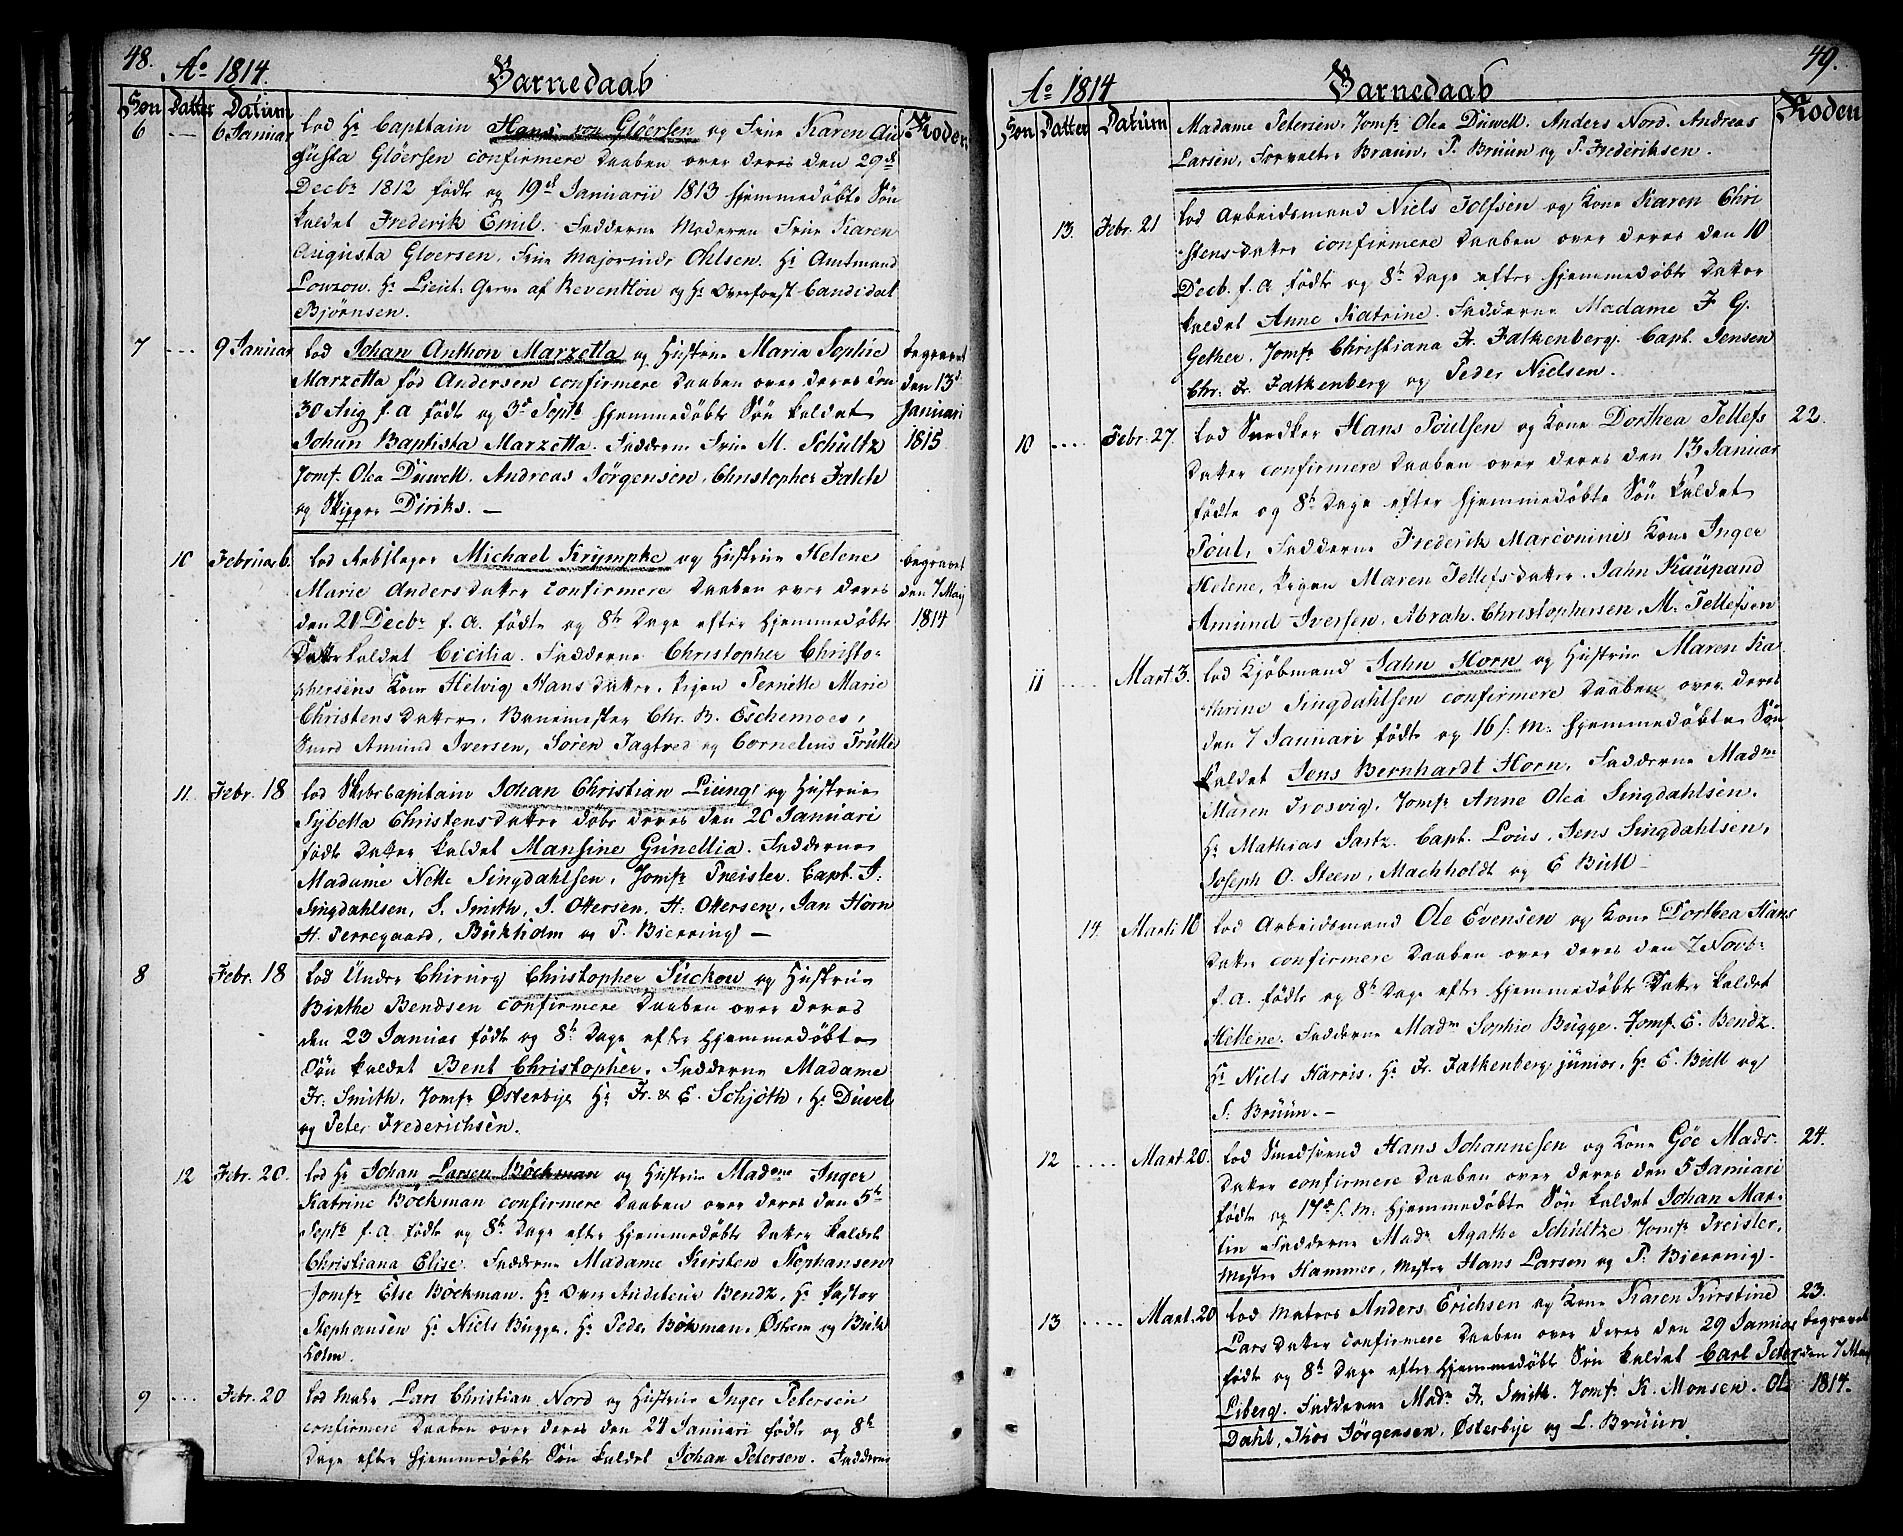 48.
Ao 1814.
Barnedaab
Søn Datter Datum
Koder
6 — 6 Januar
lod Hr Capitain Hans von Gløersen og Frue Karen Au
gusta Gløersen confirmere Daaben over deres den 29d
Decbr 1812 födte og 19d Januarii 1813 hjemmedöbte Sön
kaldet Frederik Emil. Fadderne Moderen Frue Karen
Augusta Gloersen, Frue Majorinde Ohlsen. Hr Amtmand
Lowzow. Hr Lieut. Greve af Reventlou og Hr Overforst Candidat
Björnsen.
7 ... 9 Januar
lod Johan Anthon Marzetta og Hustrue Maria Sophie
Marzetta föd Andersen confirmere Daaben over deres den
30 Aug f. a födte og 3d Septb hjemmedöbte Sön kaldet
Johan Baptista Marzetta. Fadderne Frue M. Schultz
Jomf. Olea Düwell. Andreas Jörgensen, Christopher Falch
og Skipper Diriks. —
begravet
den 13d
Januari
1815
10 Februar 6.
lod Rebslager Michael Krympke og Hustrue Helene
Marie Andersdatter confirmere Daaben over deres
den 21 Decbr f. a. födte og 8te Dage efter hjemmedöbte
Datter kaldet Cicilia. Fadderne Christopher Christo-
phersens Kone Helvig Hansdatter, Pigen Pernette Marie
Christensdatter, Banemester Chr. B. Eschemoes,
Smed Amund Iversen, Sören Jagtved og Cornelius Trulle
begravet
den 7 May
1814
11. Febr. 18
lod Skibs Capitain Johan Christian Liung og Hustrue
Sybella Christensdatter döbe deres den 20 Januari
födte Datter kaldet Mansine Gunellia. Fadderne
Madame Nette Singdahlsen, Jomfr Preister. Capt. J.
Singdahlsen, S. Smith, J. Ottersen, H. Ottersen, Jan Horn
H. Perregaard, Bukholm og P. Bierring —
8 Febr. 18
lod Under Chirurg Christopher Suckow og Hustrue
Birthe Bendsen confirmere Daaben over deres
den 23 Januar födte og 8te Dage efter hjemmedöbte
Sön kaldet Bent Christopher. Fadderne Madame
Fr. Smith, Jomfr Østerbye Hr Fr. & E. Schjöth, Hr Duvel
og Peter Frederichsen.
12 Febr. 20.
lod Hr Johan Larsen Böckman og Hustrue Madme Inger
Katrine Böckman confirmere Daaben over deres den 5te
Septb f. a. födte og 8te Dage efter hjemmedöbte Datter kaldet
Christiana Elise. Fadderne Madame Kirsten Stephansen
Jomfr Else Böckman. Hr Over Auditeur Bendz, Hr Pastor
Stephansen Hr Niels Bugge, Hr Peder Bökman. Østrem og Buk
holm.
9 .... Febr. 20
lod Maler Lars Christian Nord og Hustrue Inger Petersen
confirmere Daaben over deres den 24 Januari födte og 8te
Dage efter hjemmedöbte Sön kaldet Johan Petersen. Fadderne
49.
Ao 1814
Barnedaab
Søn Datter Datum
Koden
Madame Petersen, Jomfr Olea Düwell. Anders Nord. Andreas
Larsen, Forvalter Braun, P. Bruun og P. Frederiksen.
13. Febr. 21
lod Arbeidsmand Niels Tolfsen og Kone Karen Chri
stensdatter confirmere Daaben over deres den 10
Decb. f. a födte og 8te Dage efter hjemmedöbte Datter
kaldet Anne Katrine. Fadderne Madame J. G.
Gether, Jomfr Christiana Fr. Falkenberg. Capt. Jensen
Chr. Fr. Falkenberg og Peder Nielsen.
10 .... Febr. 27.
lod Snedker Hans Poulsen og Kone Dorthea Tellefs
datter confirmere Daaben over deres den 13 Januar
födte og 8te Dage efter hjemmedöbte Sön kaldet
Poul. Fadderne Frederik Marconinis Kone Inger
Helene, Pigen Maren Tellefsdatter. Jahn Kuupand
Amund Iversen, Abrah. Christophersen, M. Tellefsen
22.
11 ..... Mart. 3.
lod Kjöbmand Jahn Horn og Hustrue Maren Ka-
thrine Singdahlsen confirmere Daaben over deres
den 7 Januari födte og 16 s. m. hjemmedöbte Sön
kaldet Jens Bernhardt Horn. Fadderne Madm
Maren Trosvig, Jomfr Anne Olea Singdahlsen.
Hr Mathias Sartz. Capt. Lous, Jens Singdahlsen,
Joseph O. Steen, Machholdt og E Bull —
14. Marti 10
lod Arbeidsmand Ole Evensen og Kone Dorthea Hans
datter confirmere Daaben over deres den 7 Novbr
f. a. födte og 8te Dage efter hjemmedöbte Datter kaldet
Hellene. Fadderne Madm Sophie Bugge. Jomf. E. Bendz.
Hr Niels Harris. Hr Fr. Falkenberg junior, Hr E. Bull og
S. Bruun. —
12 ..... Mart. 20.
lod Smedsvend Hans Johannesen og Kone Göe Mads-
datter confirmere Daaben over deres den 5 Januari
födte og 17de s. m. hjemmedöbte Sön kaldet Johan Mar-
tin Fadderne Madm Agathe Schultze Jomfr Preister,
Mester Hammer, Mester Hans Larsen og P. Bierring.
24.
13 ..... Mart. 20
lod Matros Anders Erichsen og Kone Karen Kirstine
Larsdatter confirmere Daaben over deres den 29 Januar
födte og 8te Dage efter hjemmedöbte Sön kaldet Carl Peter
Liberg. Fadderne Madm Fr. Smith. Jomfr K. Monsen. Ole
Dahl, Thor Jörgensen, Østerbye og L. Bruun.
23.
begravet
den 7 May
1814.